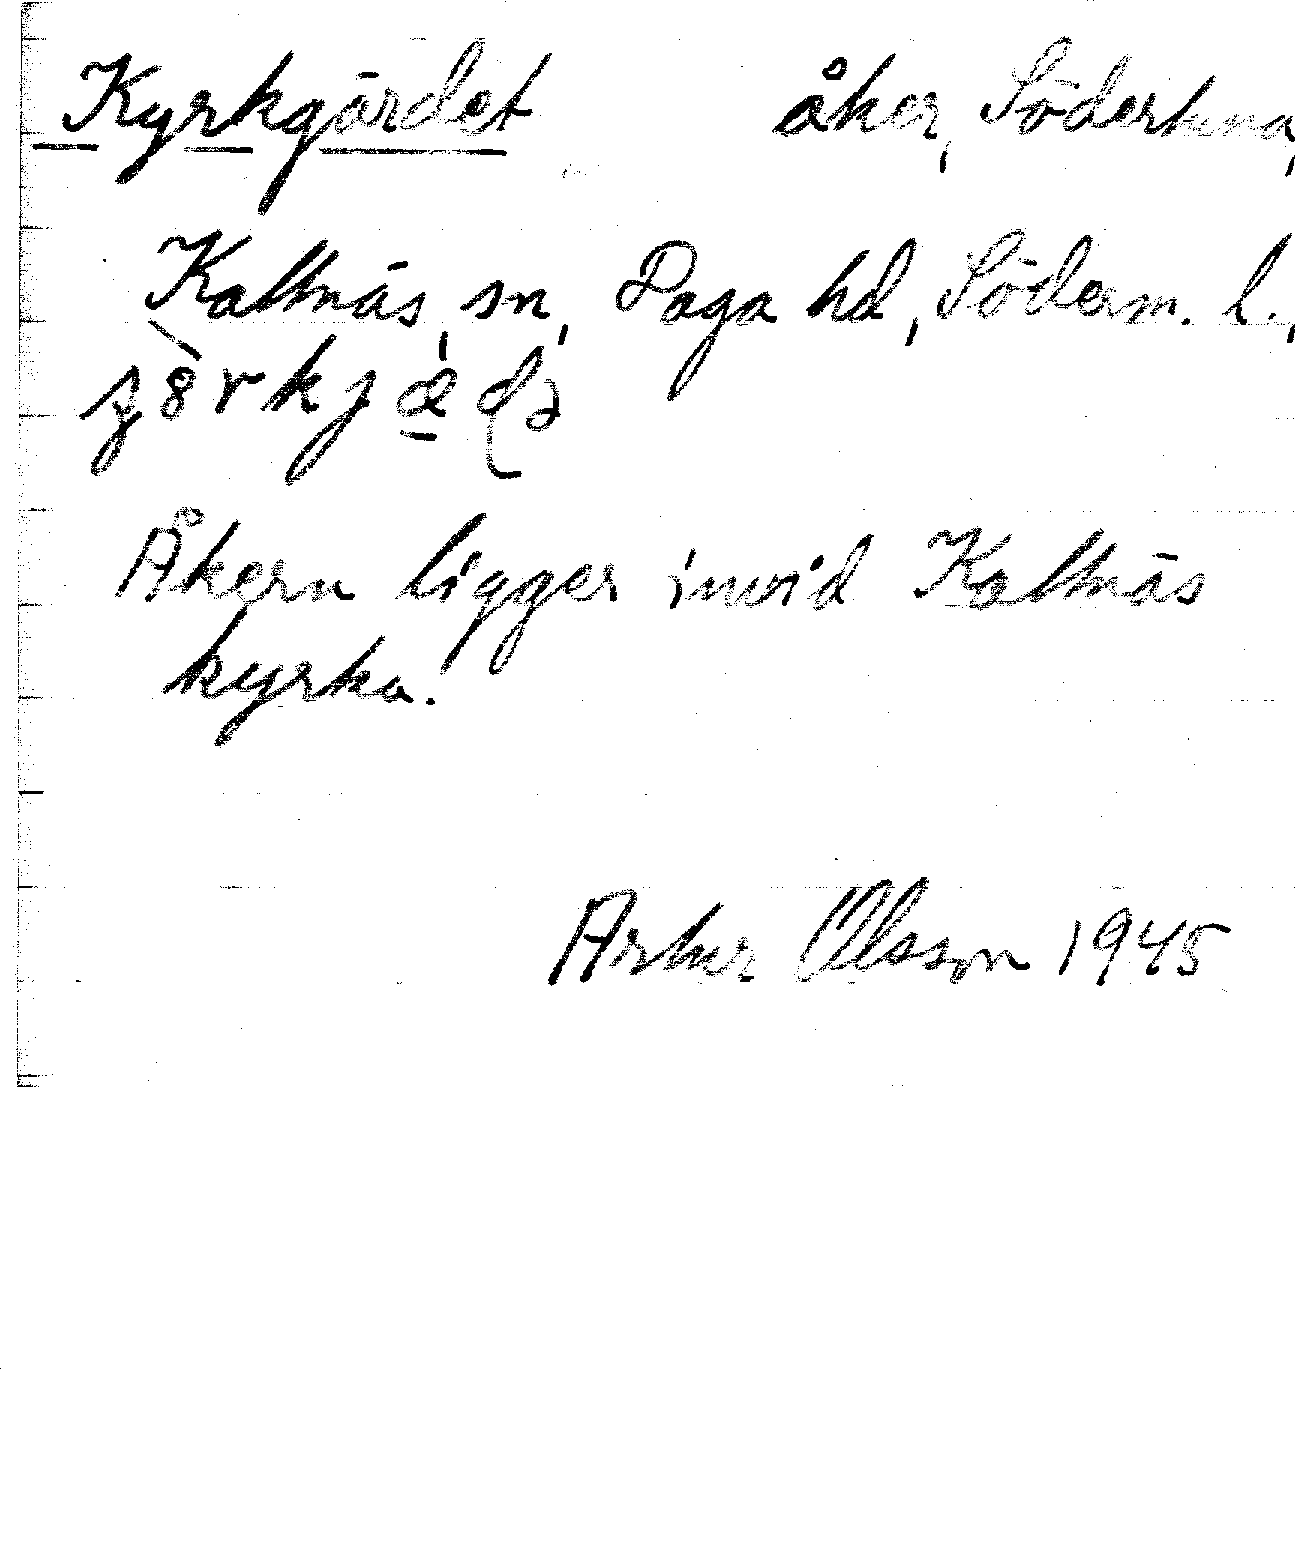 Kyrkgärdet åker, Södertuna,
Kattnäs, sn, Daga hd, Söderm. l.,
Åkern ligger invid Kattnäs
kyrka.
Artur Olsson 1945